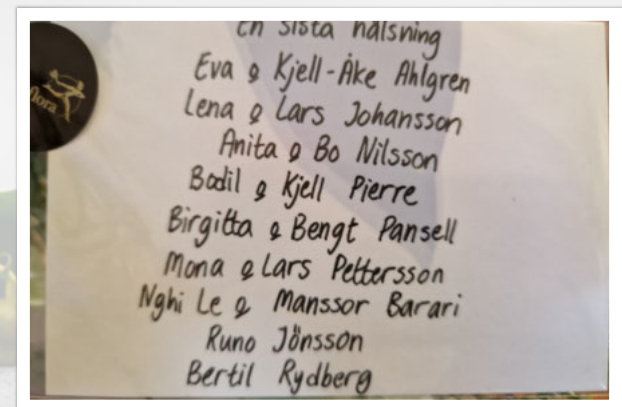 En sista hälsning
Eva & Kjell-Åke Ahlgren
Lena & Lars Johansson
Anita & Bo Nilsson
Bodil & Kjell Pierre
Birgitta & Bengt Pansell
Mona & Lars Pettersson
Nghi Le & Manssor Barari
Runo Jönsson
Bertil Rydberg
flora